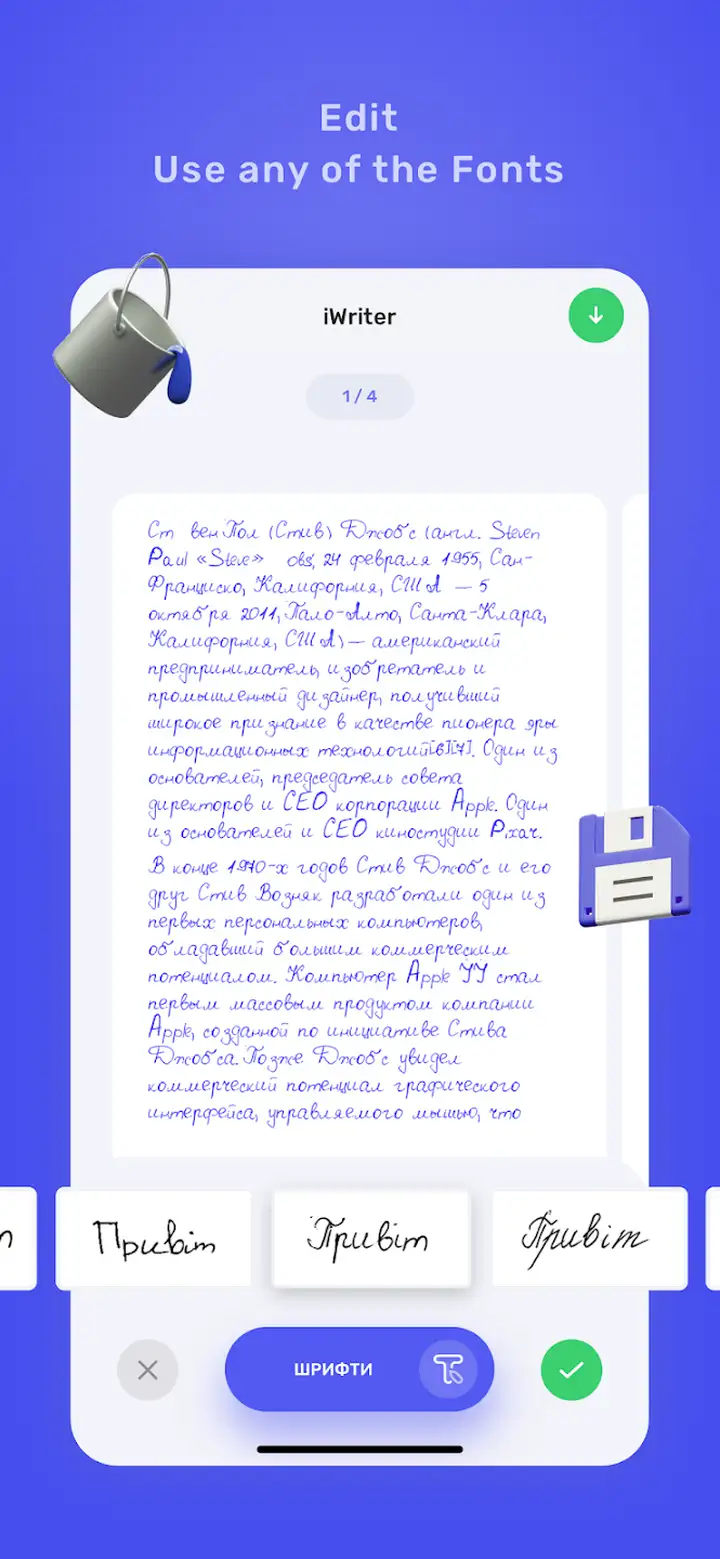 Edit
Use any of the Fonts
iWriter
1 / 4
Ст вен Пол (Стив) Джобс (англ. Steven
Paul «Steve» obs, 24 февраля 1955, Сан-
Франциско, Калифорния, США — 5
октября 2011, Пало-Алто, Санта-Клара,
Калифорния, США) — американский
предприниматель, изобретатель и
промышленный дизайнер, получивший
широкое признание в качестве пионера эры
информационных технологий[6][7]. Один из
основателей, председатель совета
директоров и CEO корпорации Apple. Один
из основателей и CEO киностудии Pixar.
В конце 1970-х годов Стив Джобс и его
друг Стив Возняк разработали один из
первых персональных компьютеров,
обладавший большим коммерческим
потенциалом. Компьютер Apple II стал
первым массовым продуктом компании
Apple, созданной по инициативе Стива
Джобса. Позже Джобс увидел
коммерческий потенциал графического
интерфейса, управляемого мышью, что
Привіт
Привіт
Привіт
ШРИФТИ